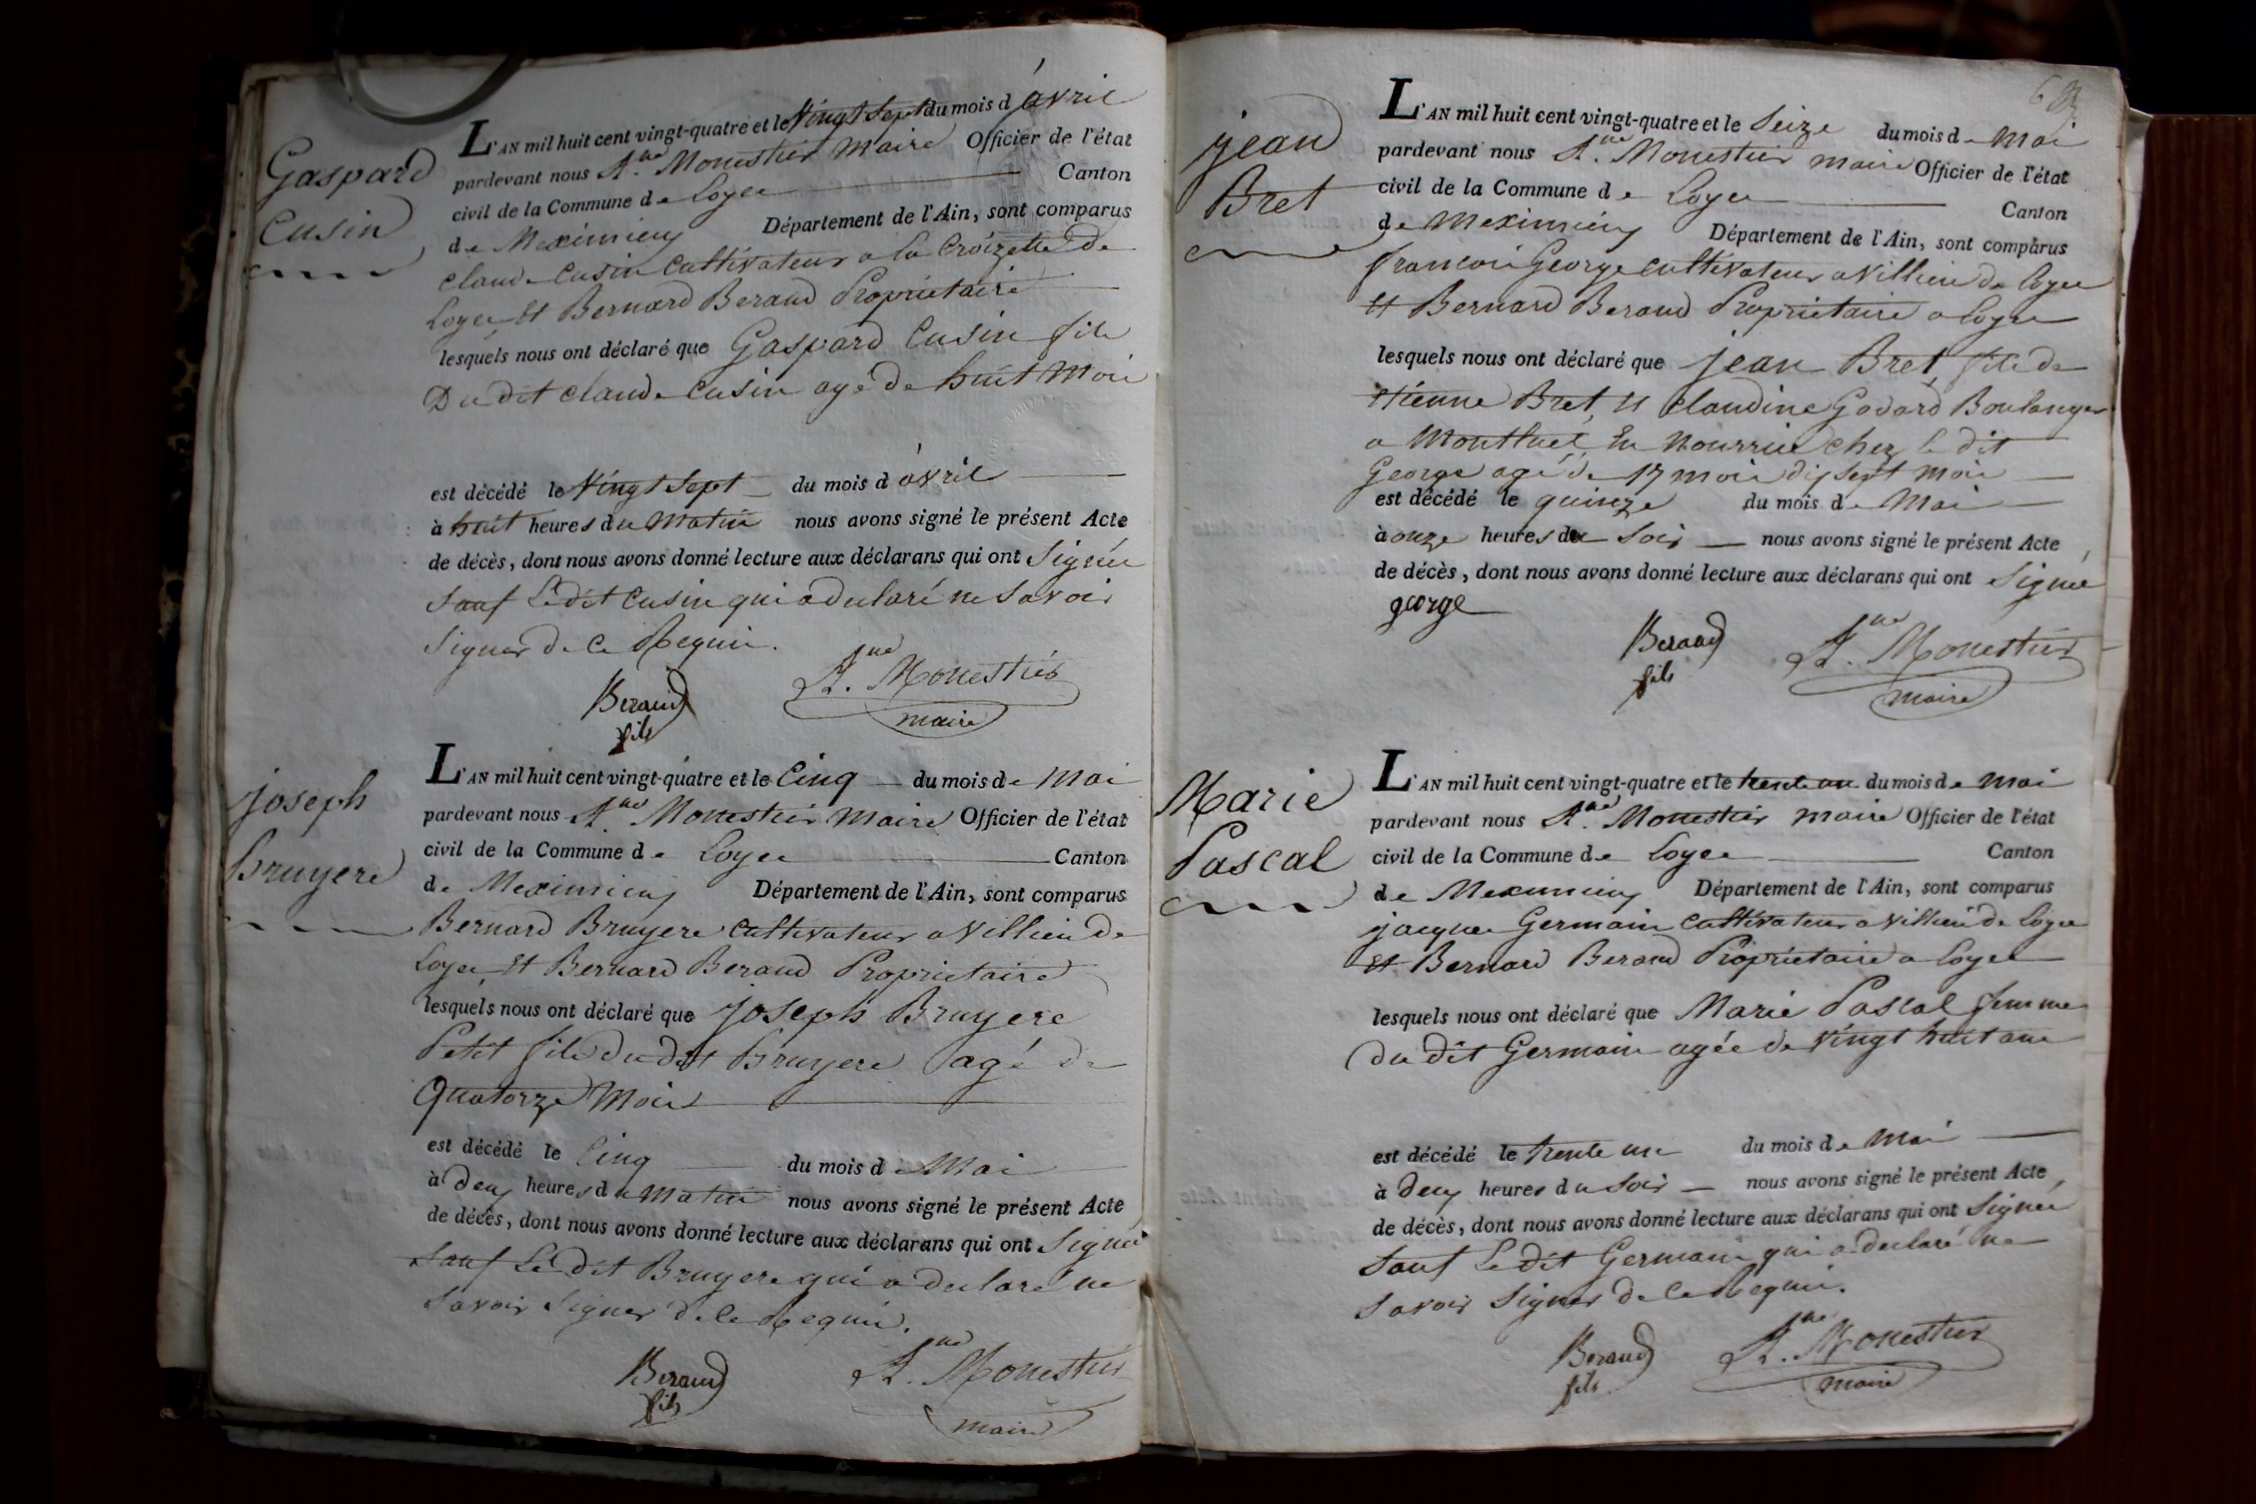 Gaspard
Cusin
L'AN mil huit cent vingt-quatre et le Vingt Sept du mois d'avril
pardevant nous A.ne Monestier Maire Officier de l'état
civil de la Commune de Loyes Canton
de Meximieux Département de l'Ain, sont comparus
claude Cusin Cultivateur a la Croizette de
Loyes Et Bernard Beraud Propriétaire
lesquels nous ont déclaré que Gaspard Cusin fils
Du dit claude Cusin agé de huit Mois
est décédé le Vingt Sept du mois d avril
à huit heures du Matin nous avons signé le présent Acte
de décès, dont nous avons donné lecture aux déclarans qui ont Signés
Sauf Ledit Cusin qui a declaré ne Savoir
Signer de ce Requis.
Beraud
fils
A.ne Monestier
maire
joseph
Bruyere
L'AN mil huit cent vingt-quatre et le Cinq du mois de Mai
pardevant nous A.ne Monestier Maire Officier de l'état
civil de la Commune de Loyes Canton
de Meximieux Département de l'Ain, sont comparus
Bernard Bruyere Cultivateur a Villieu de
Loyes Et Bernard Beraud Propriétaire
lesquels nous ont déclaré que joseph Bruyere
Petit fils du dit Bruyere agé de
Quatorze Mois
est décédé le Cinq du mois de Mai
à deux heures du Matin nous avons signé le présent Acte
de décès, dont nous avons donné lecture aux déclarans qui ont Signé
Sauf Le dit Bruyere qui a declaré ne
Savoir Signer de ce Requis.
Beraud
fils
A.ne Monestier
maire
jean
Bret
L'AN mil huit cent vingt-quatre et le Seize du mois de Mai
pardevant nous A.ne Monestier maire Officier de l'état
civil de la Commune de Loyes Canton
de Meximieux Département de l'Ain, sont comparus
francois George Cultivateur a Villieu de Loyes
Et Bernard Beraud Propriétaire a Loyes
lesquels nous ont déclaré que jean Bret, fils de
Etienne Bret Et Claudine Godard Boulanger
a Montluel En Nourrice chez le dit
George agé de 17 mois dix sept mois
est décédé le quinze du mois de Mai
à onze heures du Soir nous avons signé le présent Acte
de décès, dont nous avons donné lecture aux déclarans qui ont Signés
george
Beraud
fils
A.ne Monestier
maire
Marie
Pascal
L'AN mil huit cent vingt-quatre et le trente un du mois de Mai
pardevant nous A.ne Monestier maire Officier de l'état
civil de la Commune de Loyes Canton
de Meximieux Département de l'Ain, sont comparus
jacques Germain Cultivateur a Villieu de Loyes
Et Bernard Beraud Propriétaire a Loyes
lesquels nous ont déclaré que Marie Pascal femme
du dit Germain agée de Vingt huit ans
est décédé le trente un du mois de Mai
à deux heures du Soir nous avons signé le présent Acte
de décès, dont nous avons donné lecture aux déclarans qui ont Signés
Sauf Ledit Germain qui a declaré ne
Savoir Signer de ce Requis.
Beraud
fils
A.ne Monestier
maire